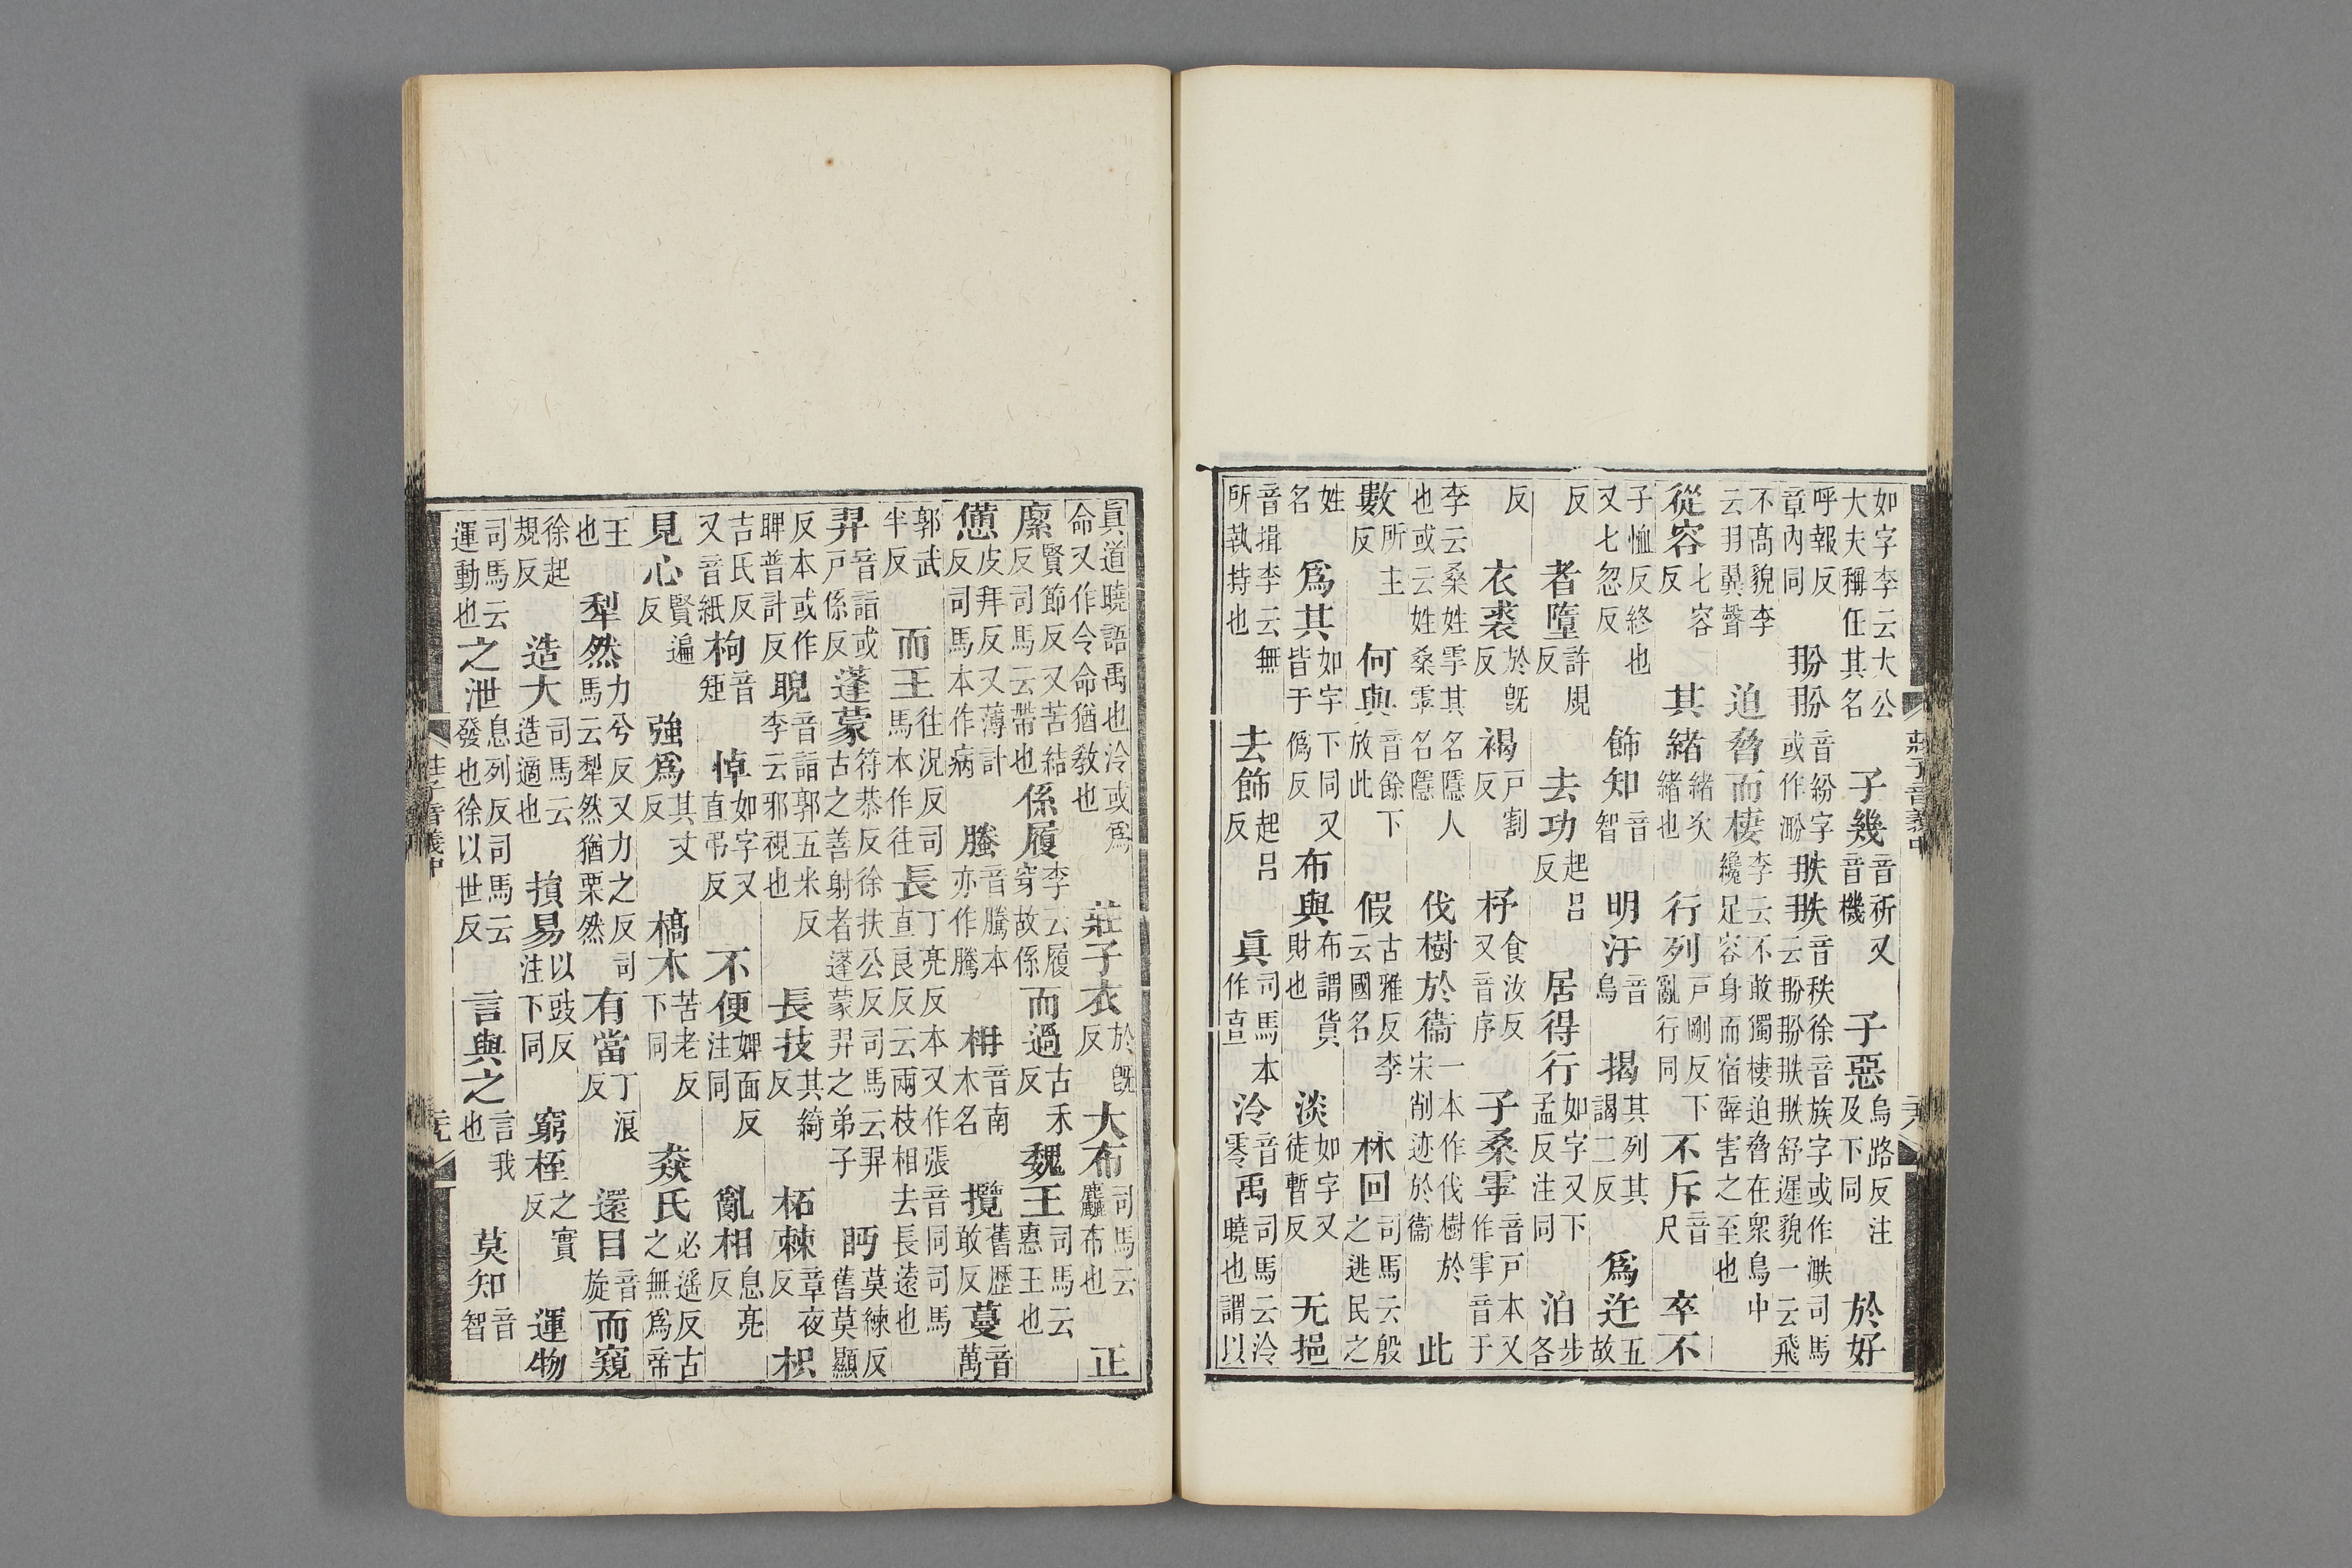 莊子音義中
如字李云大公大夫稱任其名 子幾音祈又音機 子惡烏路反注及下同 於好
呼報反章內同 翂翂音紛字或作溯 翐翐音秩徐音族字或作㴙司馬云翂翂翐翐舒遲貌一云飛
不高貌李云羽翼聲 迫脅而棲李云不敢獨棲迫脅在衆鳥中纔足容身而宿辟害之至也
從容七容反 其緒緒次緒也 行列戶剛反下亂行同 不斥音尺 卒不
子恤反終也又七忽反 飾知音智 明汙音烏 揭其列其謁二反 爲迕五故
反 者墮許規反 去功起呂反 居得行如字又下孟反注同 泊步各
反 衣裘於旣反 褐戶割反 杼食汝反又音序 子桑雽音戶本又作雩音于
李云桑姓雽其名隱人也或云姓桑雽名隱 伐樹於衞一本作伐樹於宋削迹於衞 此
數所主反 何與音餘下放此 假古雅反李云國名 林回司馬云殷之逃民之
姓名 爲其如字下同又皆于僞反 布與布謂貨財也 淡如字又徒暫反 无挹
音揖李云無所執持也 去飾起呂反 眞司馬本作直 泠音零 禹司馬云泠曉也謂以
眞道曉語禹也泠或爲命又作令命猶敎也 莊子衣於旣反 大布司馬云麤布也 正
緳賢節反又苦結反司馬云帶也 係履李云履穿故係 而過古禾反 魏王司馬云惠王也
憊皮拜反又薄計反司馬本作病 螣音騰本亦作騰 枏音南木名 攬舊歷敢反 蔓音萬
郭武半反 而王往況反司馬本作往 長丁亮反本又作張音同司馬直良反云兩枝相去長遠也
羿音詣或戶係反 蓬蒙符恭反徐扶公反司馬云羿古之善射者蓬蒙羿之弟子 眄莫練反舊莫顯
反本或作睥普計反 睨音詣郭五米反李云邪視也 長技其綺反 柘棘章夜反 枳
吉氏反又音紙 枸音矩 悼如字又直弔反 不便婢面反注同 亂相息亮反
見心賢遍反 強爲其丈反 槁木苦老反下同 猋氏必遙反古之無爲帝
王也 犁然力兮反又力之反司馬云犁然猶栗然 有當丁浪反 還目音旋 而窺
徐起規反 造大司馬云造適也 損易以豉反注下同 窮桎之實反 運物
司馬云運動也 之泄息列反司馬云發也徐以世反 言與之言我也 莫知音智
莊子音義中